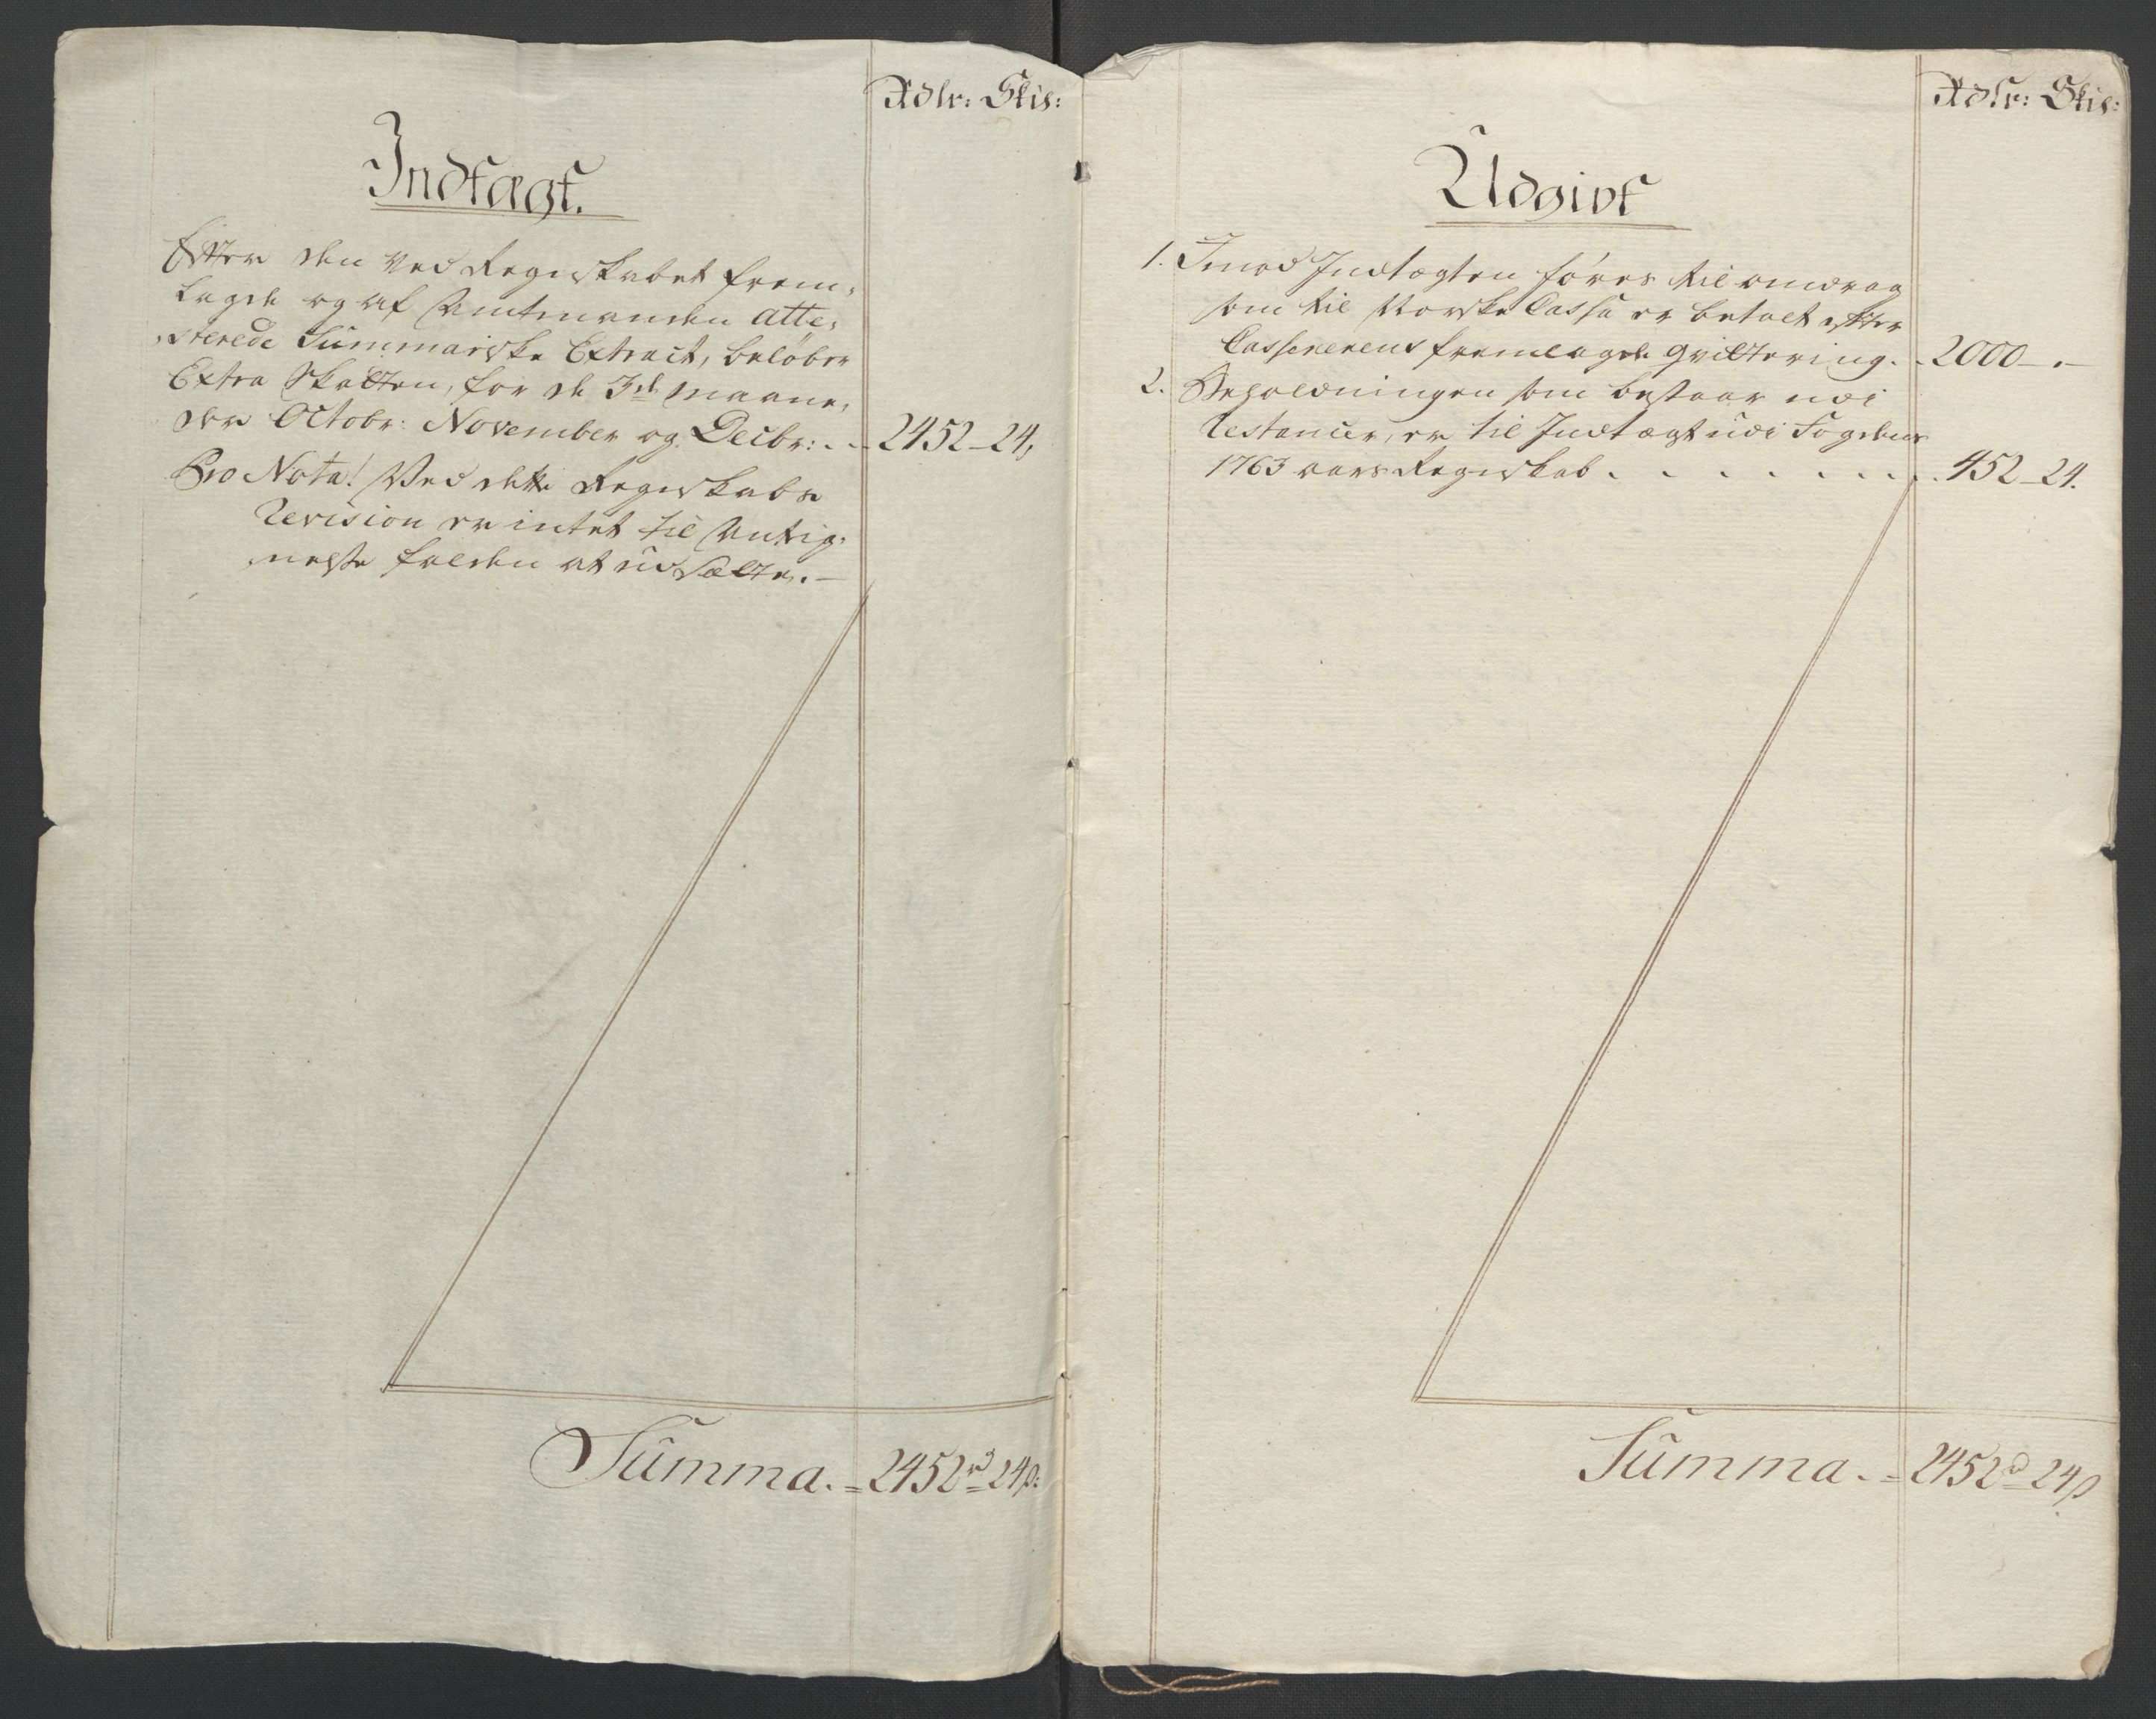 Rdlr: Skil:
Indtægt.
Efter den ved Regnskabet frem-
lagde og af Amtmanden atte-
sterede Summariske Extract, beløber
Extra Skatten, for de 3de maane-
der Octobr: November og Decbr: . . 2452 - 24,
Pro Nota! Ved dette Regnskabs
Revision er intet til Antig-
nelse falden at udsætte. —
Summa. = 2452 rd 24 ß:
Rdlr: Skil:
Udgivt
1. Imod Indtægten føres til omdrag
som til Norske Cassa er betalt efter
Cassererens fremlagde qvittering. . 2000 - . -
2. Beholdningen som bestaar udi
Restancer, er til Indtægt udi Fogdens
1763 aars Regnskab . . . . . . . . 452 - 24.
Summa. = 2452 rd 24 ß